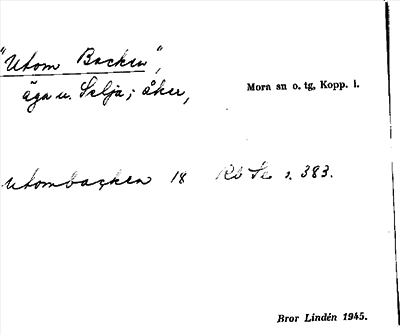 "Utom Backen",
äga u. Selja; åker,
Mora sn o. tg, Kopp. l.
Utombacken 18 Rb s. 383.
Bror Lindén 1945.